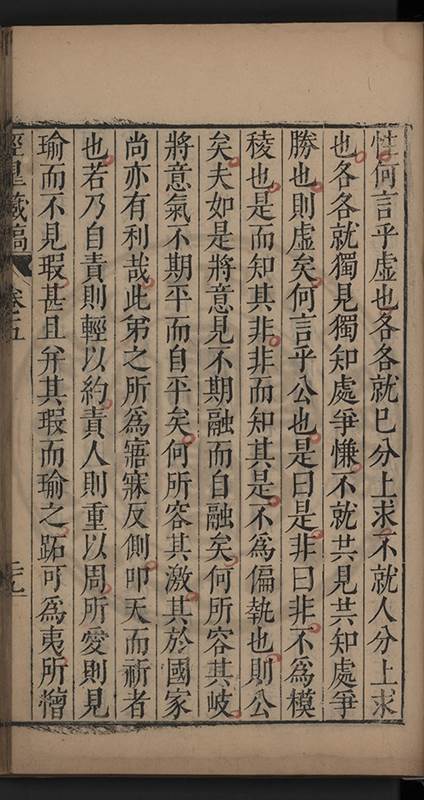 性何言乎虛也各各就己分上求不就人分上求
也各各就獨見獨知處爭慊不就共見共知處爭
勝也則虛矣何言乎公也是曰是非曰非不為模
稜也是而知其非非而知其是不為偏執也則公
矣夫如是將意見不期融而自融矣何所容其岐
將意氣不期平而自平矣何所容其激其於國家
尚亦有利哉此第之所為寤寐反側叩天而祈者
也若乃自責則輕以約責人則重以周所愛則見
瑜而不見瑕甚且并其瑕而瑜之跖可為夷所憎
涇皋藏稿
卷之五